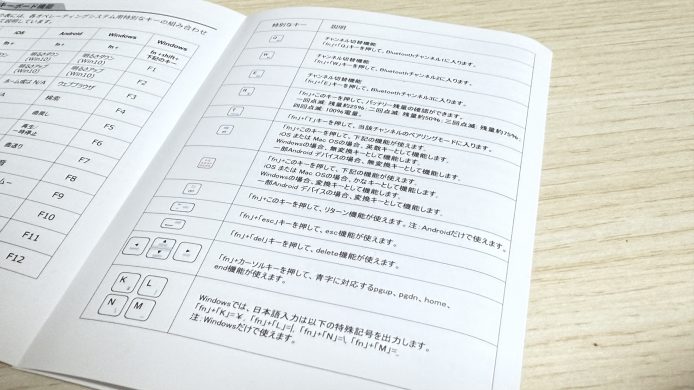 キーボード機能
表には、各オペレーティングシステム用特別なキーの組み合わせ
て説明しています。
iOS Android Windows Windows
fn+ fn+ fn+ fn+shift+
下記のキー
明るさダウン
(Win10)
明るさダウン
(Win10)
F1
明るさアップ
(Win10)
明るさアップ
(Win10)
F2
ホーム或は N/A ウェブブラウザ F3
検索 F4
F5
再生/
一時停止
F6
曲送り F7
F8
F9
F10
F11
F12
特別なキー 説明
Q チャンネル切替機能
「fn」+「Q」キーを押して、Bluetoothチャンネル1に入ります。
W チャンネル切替機能
「fn」+「W」キーを押して、Bluetoothチャンネル2に入ります。
E チャンネル切替機能
「fn」+「E」キーを押して、Bluetoothチャンネル3に入ります。
R 「fn」+このキーを押して、バッテリー残量の確認ができます。
一回点滅:残量約25%;二回点滅:残量約50%;三回点滅:残量約75%;
四回点滅:100%電量。
T 「fn」+「T」キーを押して、当該チャンネルのペアリングモードに入ります。
「fn」+このキーを押して、下記の機能が使えます。
iOS または Mac OSの場合、英数キーとして機能します.
Windowsの場合、無変換キーとして機能します.
一部Android デバイスの場合、無変換キーとして機能します.
「fn」+このキーを押して、下記の機能が使えます.
iOS または Mac OSの場合、かなキーとして機能します.
Windowsの場合、変換キーとして機能します.
一部Android デバイスの場合、変換キーとして機能します.
「fn」+このキーを押して、リターン機能が使えます。注:Androidだけで使えます。
「fn」+「esc」キーを押して、esc機能が使えます。
「fn」+「del」キーを押して、delete機能が使えます。
「fn」+カーソルキーを押して、青字に対応するpgup、pgdn、home、
end機能が使えます。
K L
N M
Windowsでは、日本語入力は以下の特殊記号を出力します。
「fn」+「K」=¥、「fn」+「L」=|、「fn」+「N」=\、「fn」+「M」=_
注:Windowsだけで使えます。